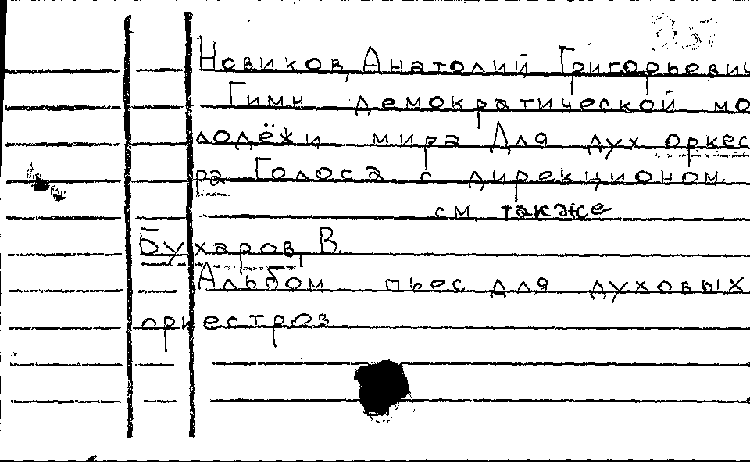 Новиков, Анатолий Григорьевич
Гимн демократической мо
лодёжи мира Для дух оркес
ра Голоса с дирекционом.
см также
Бухаров, В.
Альбом пьес для духовых
оркестров